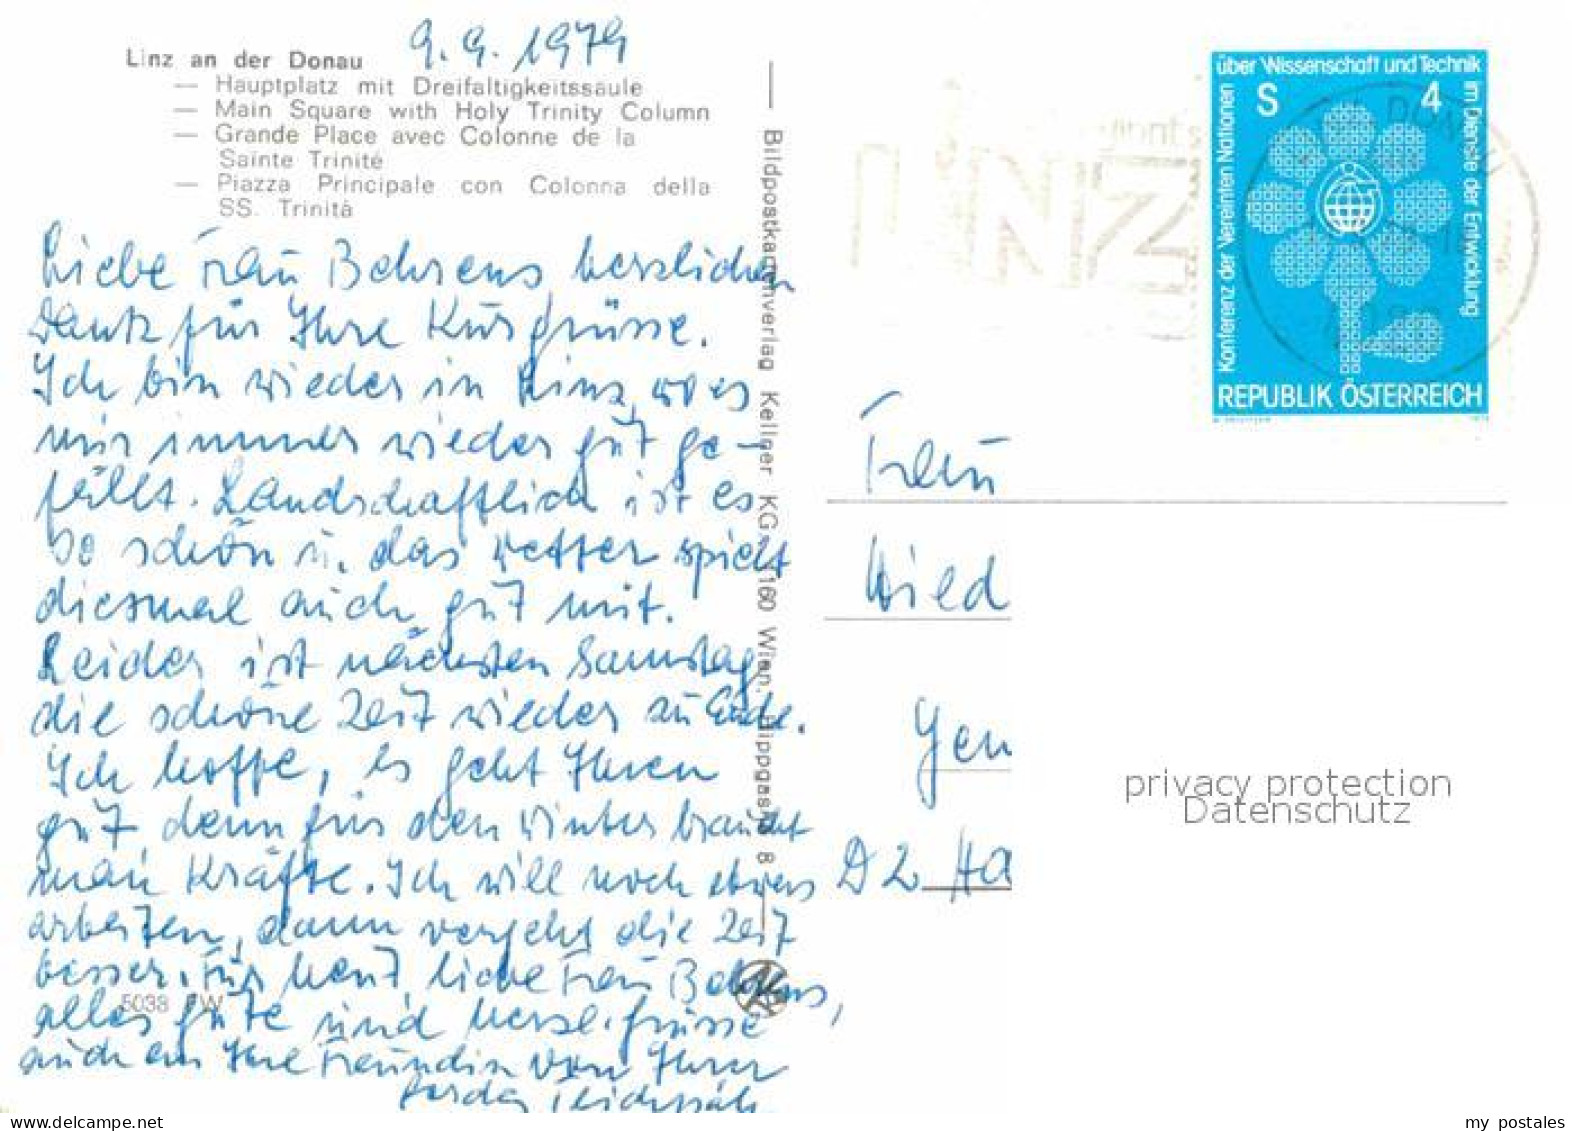 9.9.1979
Linz an der Donau
— Hauptplatz mit Dreifaltigkeitssäule
— Main Square with Holy Trinity Column
— Grande Place avec Colonne de la
Sainte Trinité
— Piazza Principale con Colonna della
SS. Trinità
Liebe Frau Behrens herzlichen
Dank für Ihre Kurgrüsse.
Ich bin wieder in Linz, wo es
mir immer wieder gut ge-
fällt. Landschaftlich ist es
so schön u. das Wetter spielt
diesmal auch gut mit.
Leider ist nächsten Samstag
die schöne Zeit wieder zu Ende.
Ich hoffe, es geht Ihnen
gut denn für den Winter braucht
man Kräfte. Ich will noch etwas
arbeiten, dann vergeht die Zeit
besser. Für heut, liebe Frau Behrens,
alles Gute und herzl. Grüsse
auch an Ihre Freundin von Ihrer
5038 KW
Bildpostkartenverlag Kellner KG, 1160 Wien, Hippgasse 8
LINZ
DONAU
über Wissenschaft und Technik
im Dienste der Entwicklung
Konferenz der Vereinten Nationen
S 4
REPUBLIK ÖSTERREICH
Frau
Wied
Gen
D 2 Ha
privacy protection
Datenschutz
my postales